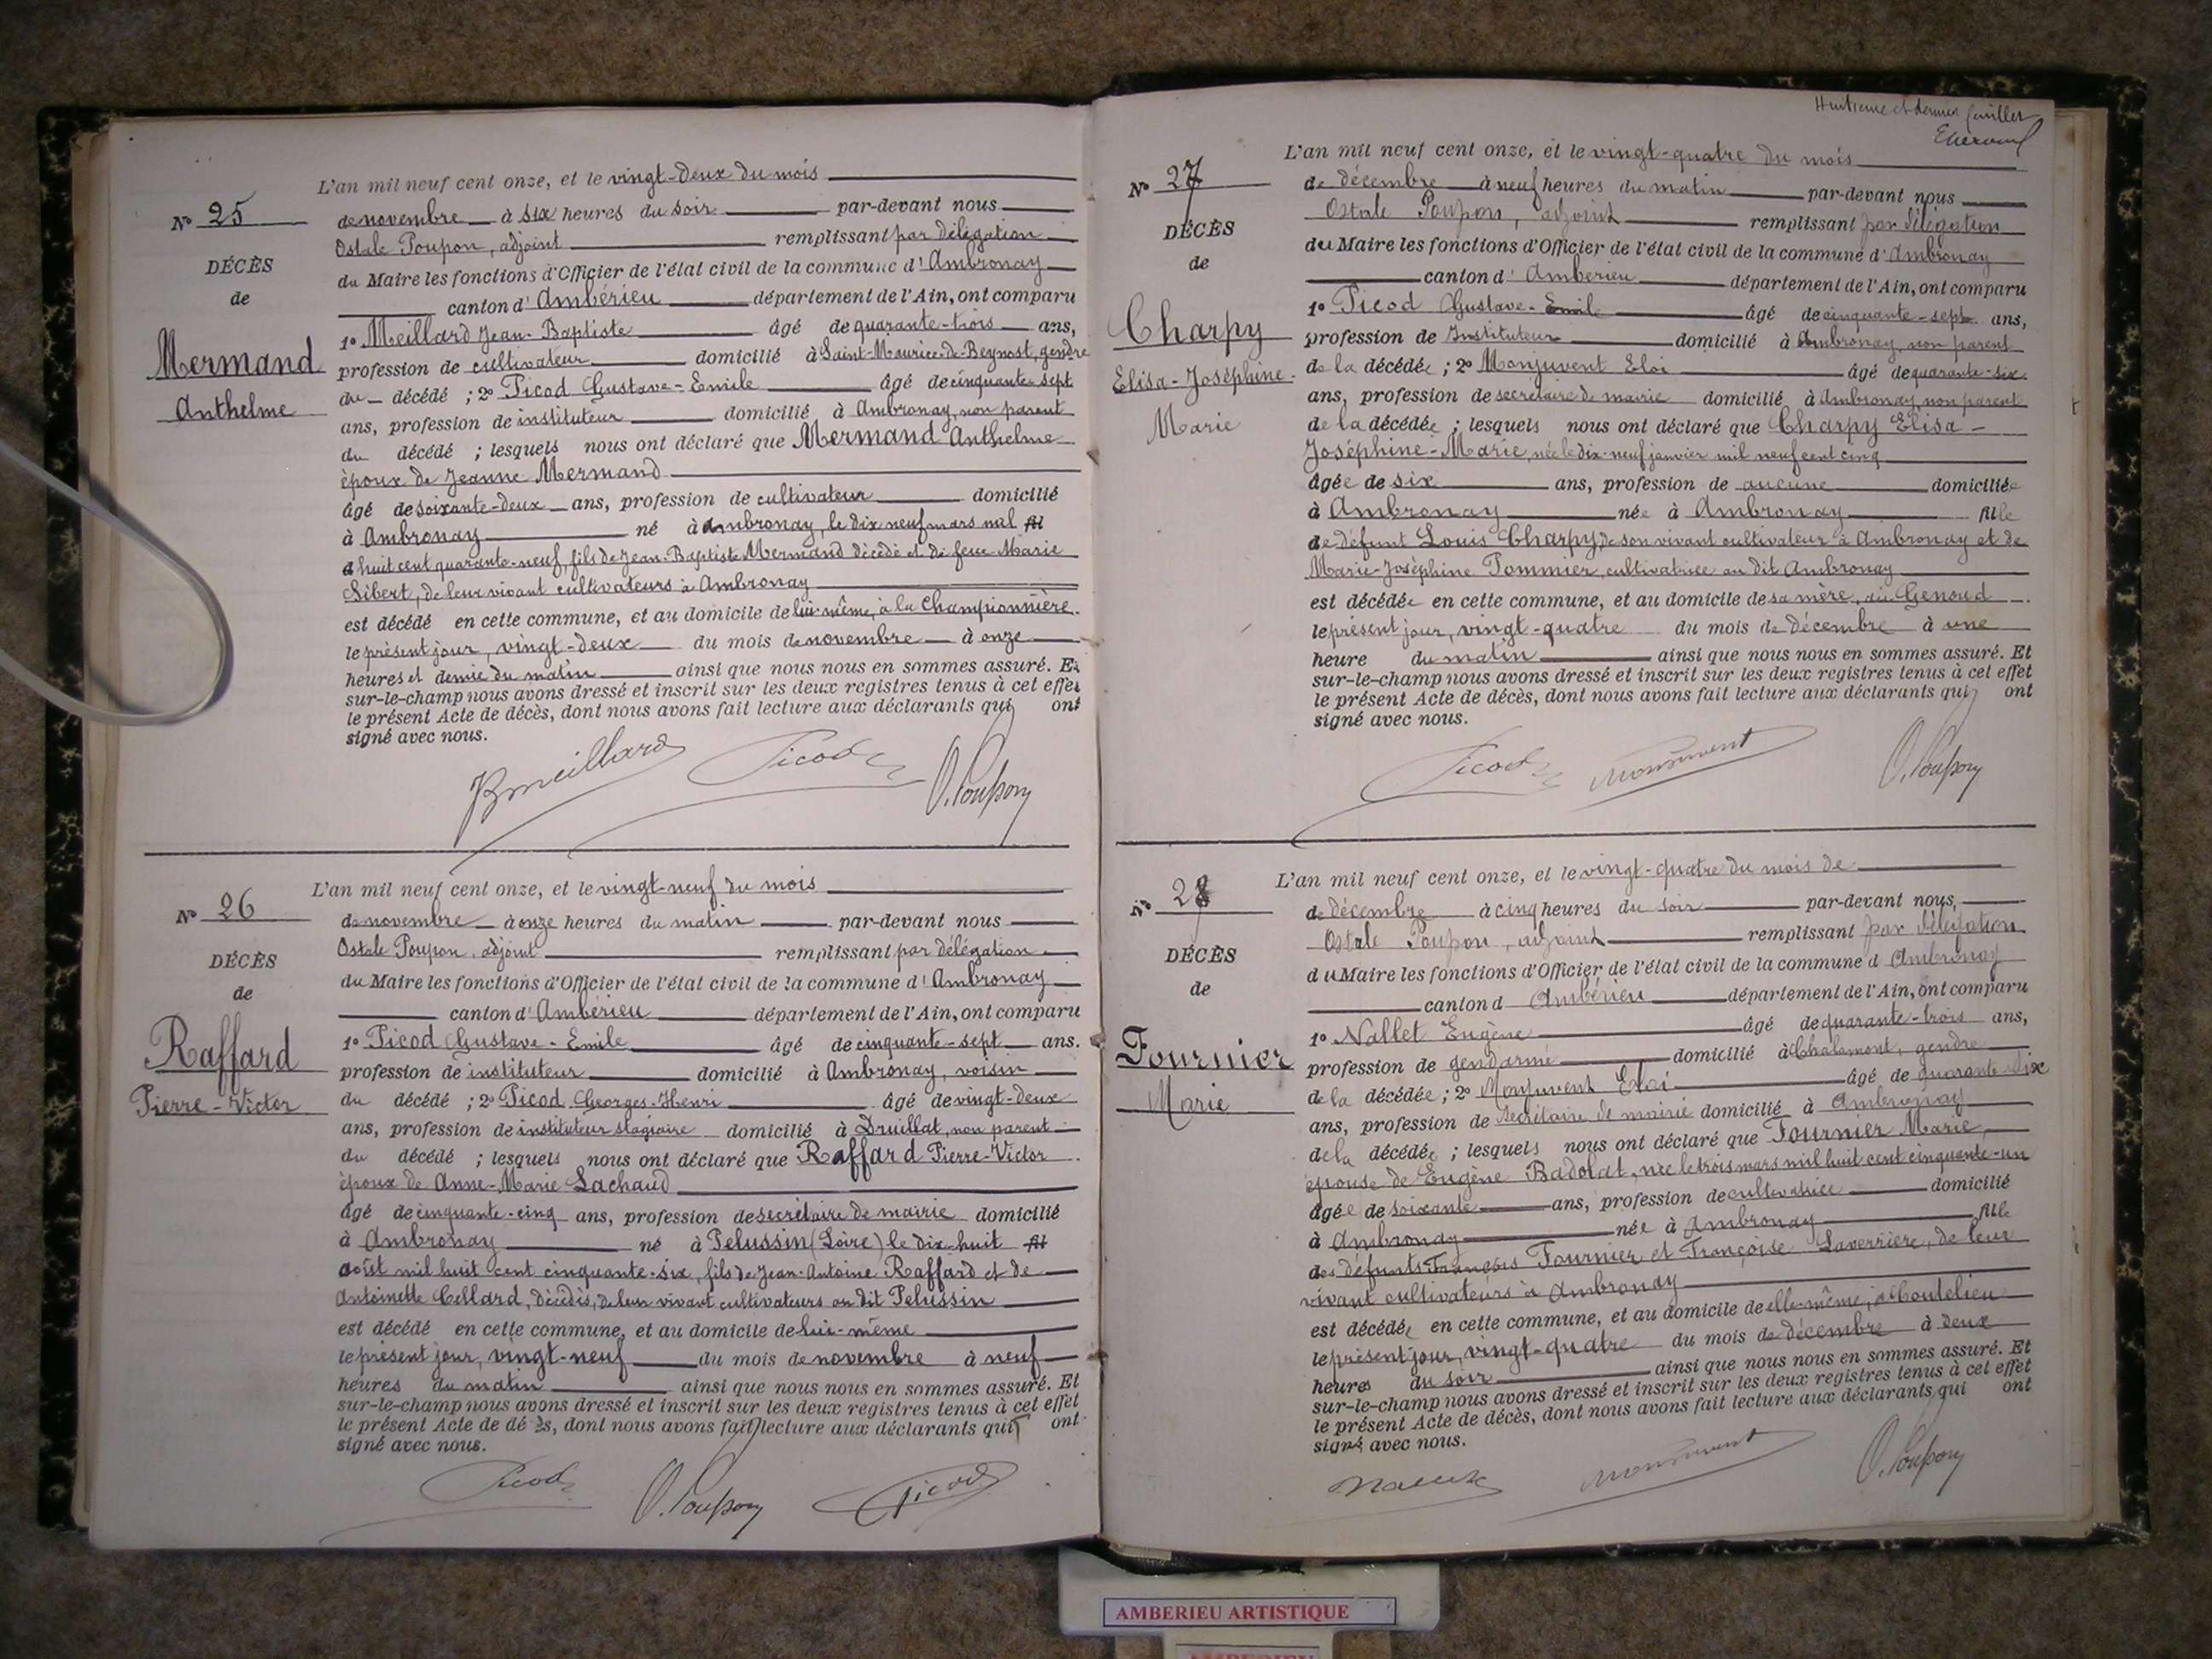 L'an mil neuf cent onze, et le vingt-deux du mois
N° 25
de novembre à six heures du soir par-devant nous
Ostale Poupon, adjoint remplissant par délégation
DÉCÈS
du Maire les fonctions d'Officier de l'état civil de la commune d'Ambronay
de
canton d'Ambérieu département de l'Ain, ont comparu
1° Meillard Jean-Baptiste âgé de quarante-trois ans,
Mermand
profession de cultivateur domicilié à Saint-Maurice-de-Beynost, gendre
du décédé ; 2° Picod Gustave-Emile âgé de cinquante-sept
Anthelme
ans, profession de instituteur domicilié à Ambronay, non parent
du décédé ; lesquels nous ont déclaré que Mermand Anthelme
époux de Jeanne Mermand
âgé de soixante-deux ans, profession de cultivateur domicilié
à Ambronay né à Ambronay, le dix neuf mars mil fil
huit cent quarante-neuf, fils de Jean-Baptiste Mermand décédé et de feue Marie
Sibert, de leur vivant cultivateurs à Ambronay
est décédé en cette commune, et au domicile de lui-même, à la Championnière
le présent jour, vingt-deux du mois de novembre à onze
heures et demie du matin ainsi que nous nous en sommes assuré. Et
sur-le-champ nous avons dressé et inscrit sur les deux registres tenus à cet effet
le présent Acte de décès, dont nous avons fait lecture aux déclarants qui ont
signé avec nous.
JBmeillard Picod O. Poupon
L'an mil neuf cent onze, et le vingt-neuf du mois
N° 26
de novembre à onze heures du matin par-devant nous
Ostale Poupon, adjoint remplissant par délégation
DÉCÈS
du Maire les fonctions d'Officier de l'état civil de la commune d'Ambronay
de
canton d'Ambérieu département de l'Ain, ont comparu
1° Picod Gustave-Emile âgé de cinquante-sept ans.
Raffard
profession de instituteur domicilié à Ambronay, voisin
Pierre-Victor
du décédé ; 2° Picod Georges-Henri âgé de vingt-deux
ans, profession de instituteur stagiaire domicilié à Druillat, non parent
du décédé ; lesquels nous ont déclaré que Raffard Pierre-Victor
époux de Anne-Marie Lachaud
âgé de cinquante-cinq ans, profession de secrétaire de mairie domicilié
à Ambronay né à Pelussin (Loire) le dix-huit fil
août mil huit cent cinquante-six, fils de Jean-Antoine Raffard et de
Antoinette Cellard, décédés, de leur vivant cultivateurs au dit Pelussin
est décédé en cette commune, et au domicile de lui-même
le présent jour, vingt-neuf du mois de novembre à neuf
heures du matin ainsi que nous nous en sommes assuré. Et
sur-le-champ nous avons dressé et inscrit sur les deux registres tenus à cet effet
le présent Acte de décès, dont nous avons fait lecture aux déclarants qui ont
signé avec nous.
Picod O. Poupon Picod
Huitième et dernier feuillet
L'an mil neuf cent onze, et le vingt-quatre du mois
N° 27
de décembre à neuf heures du matin par-devant nous
Ostale Poupon, adjoint remplissant par délégation
DÉCÈS
du Maire les fonctions d'Officier de l'état civil de la commune d'Ambronay
de
canton d'Ambérieu département de l'Ain, ont comparu
1° Picod Gustave-Emile âgé de cinquante-sept ans,
Charpy
profession de Instituteur domicilié à Ambronay, non parent
Elisa-Joséphine-
de la décédée ; 2° Monjuvent Eloi âgé de quarante-six
ans, profession de secrétaire de mairie domicilié à Ambronay, non parent
Marie
de la décédée ; lesquels nous ont déclaré que Charpy Elisa-
Joséphine-Marie, née le dix-neuf janvier mil neuf cent cinq
âgée de six ans, profession de aucune domiciliée
à Ambronay née à Ambronay fille
de défunt Louis Charpy, de son vivant cultivateur à Ambronay et de
Marie-Joséphine Pommier, cultivatrice au dit Ambronay
est décédée en cette commune, et au domicile de sa mère, au Genoud
le présent jour, vingt-quatre du mois de décembre à une
heure du matin ainsi que nous nous en sommes assuré. Et
sur-le-champ nous avons dressé et inscrit sur les deux registres tenus à cet effet
le présent Acte de décès, dont nous avons fait lecture aux déclarants qui ont
signé avec nous.
Picod Monjuvent O. Poupon
L'an mil neuf cent onze, et le vingt-quatre du mois de
N° 28
de décembre à cinq heures du soir par-devant nous,
Ostale Poupon, adjoint remplissant par délégation
DÉCÈS
du Maire les fonctions d'Officier de l'état civil de la commune d Ambronay
de
canton d Ambérieu département de l'Ain, ont comparu
1° Nallet Eugène âgé de quarante-trois ans,
Fournier
profession de gendarme domicilié à Chalamont, gendre
Marie
de la décédée ; 2° Monjuvent Eloi âgé de quarante-six
ans, profession de Secrétaire de mairie domicilié à Ambronay
de la décédée ; lesquels nous ont déclaré que Fournier Marie,
épouse de Eugène Badolat, née le trois mars mil huit cent cinquante-un
âgée de soixante ans, profession de cultivatrice domicilié
à Ambronay née à Ambronay fille
des défunts François Fournier et Françoise Laverrière, de leur
vivant cultivateurs à Ambronay
est décédée en cette commune, et au domicile de elle-même, à Coutelieu
le présent jour, vingt-quatre du mois de décembre à deux
heures du soir ainsi que nous nous en sommes assuré. Et
sur-le-champ nous avons dressé et inscrit sur les deux registres tenus à cet effet
le présent Acte de décès, dont nous avons fait lecture aux déclarants qui ont
signé avec nous.
Nallet Monjuvent O. Poupon
AMBERIEU ARTISTIQUE
AMBERIEU